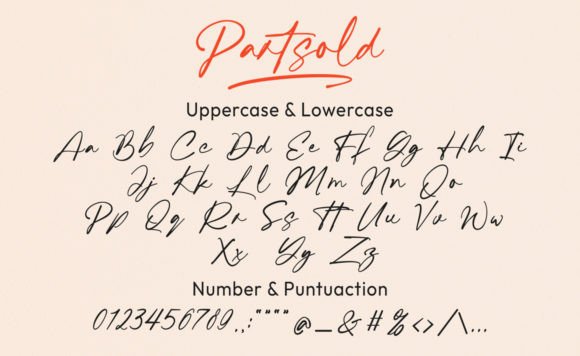 Partsold
Uppercase & Lowercase
Aa Bb Cc Dd Ee Ff Gg Hh Ii
Jj Kk Ll Mm Nn Oo
Pp Qq Rr Ss Tt Uu Vv Ww
Xx Yy Zz
Number & Puntuaction
0123456789.,:;"""" @_&#%<>/\...